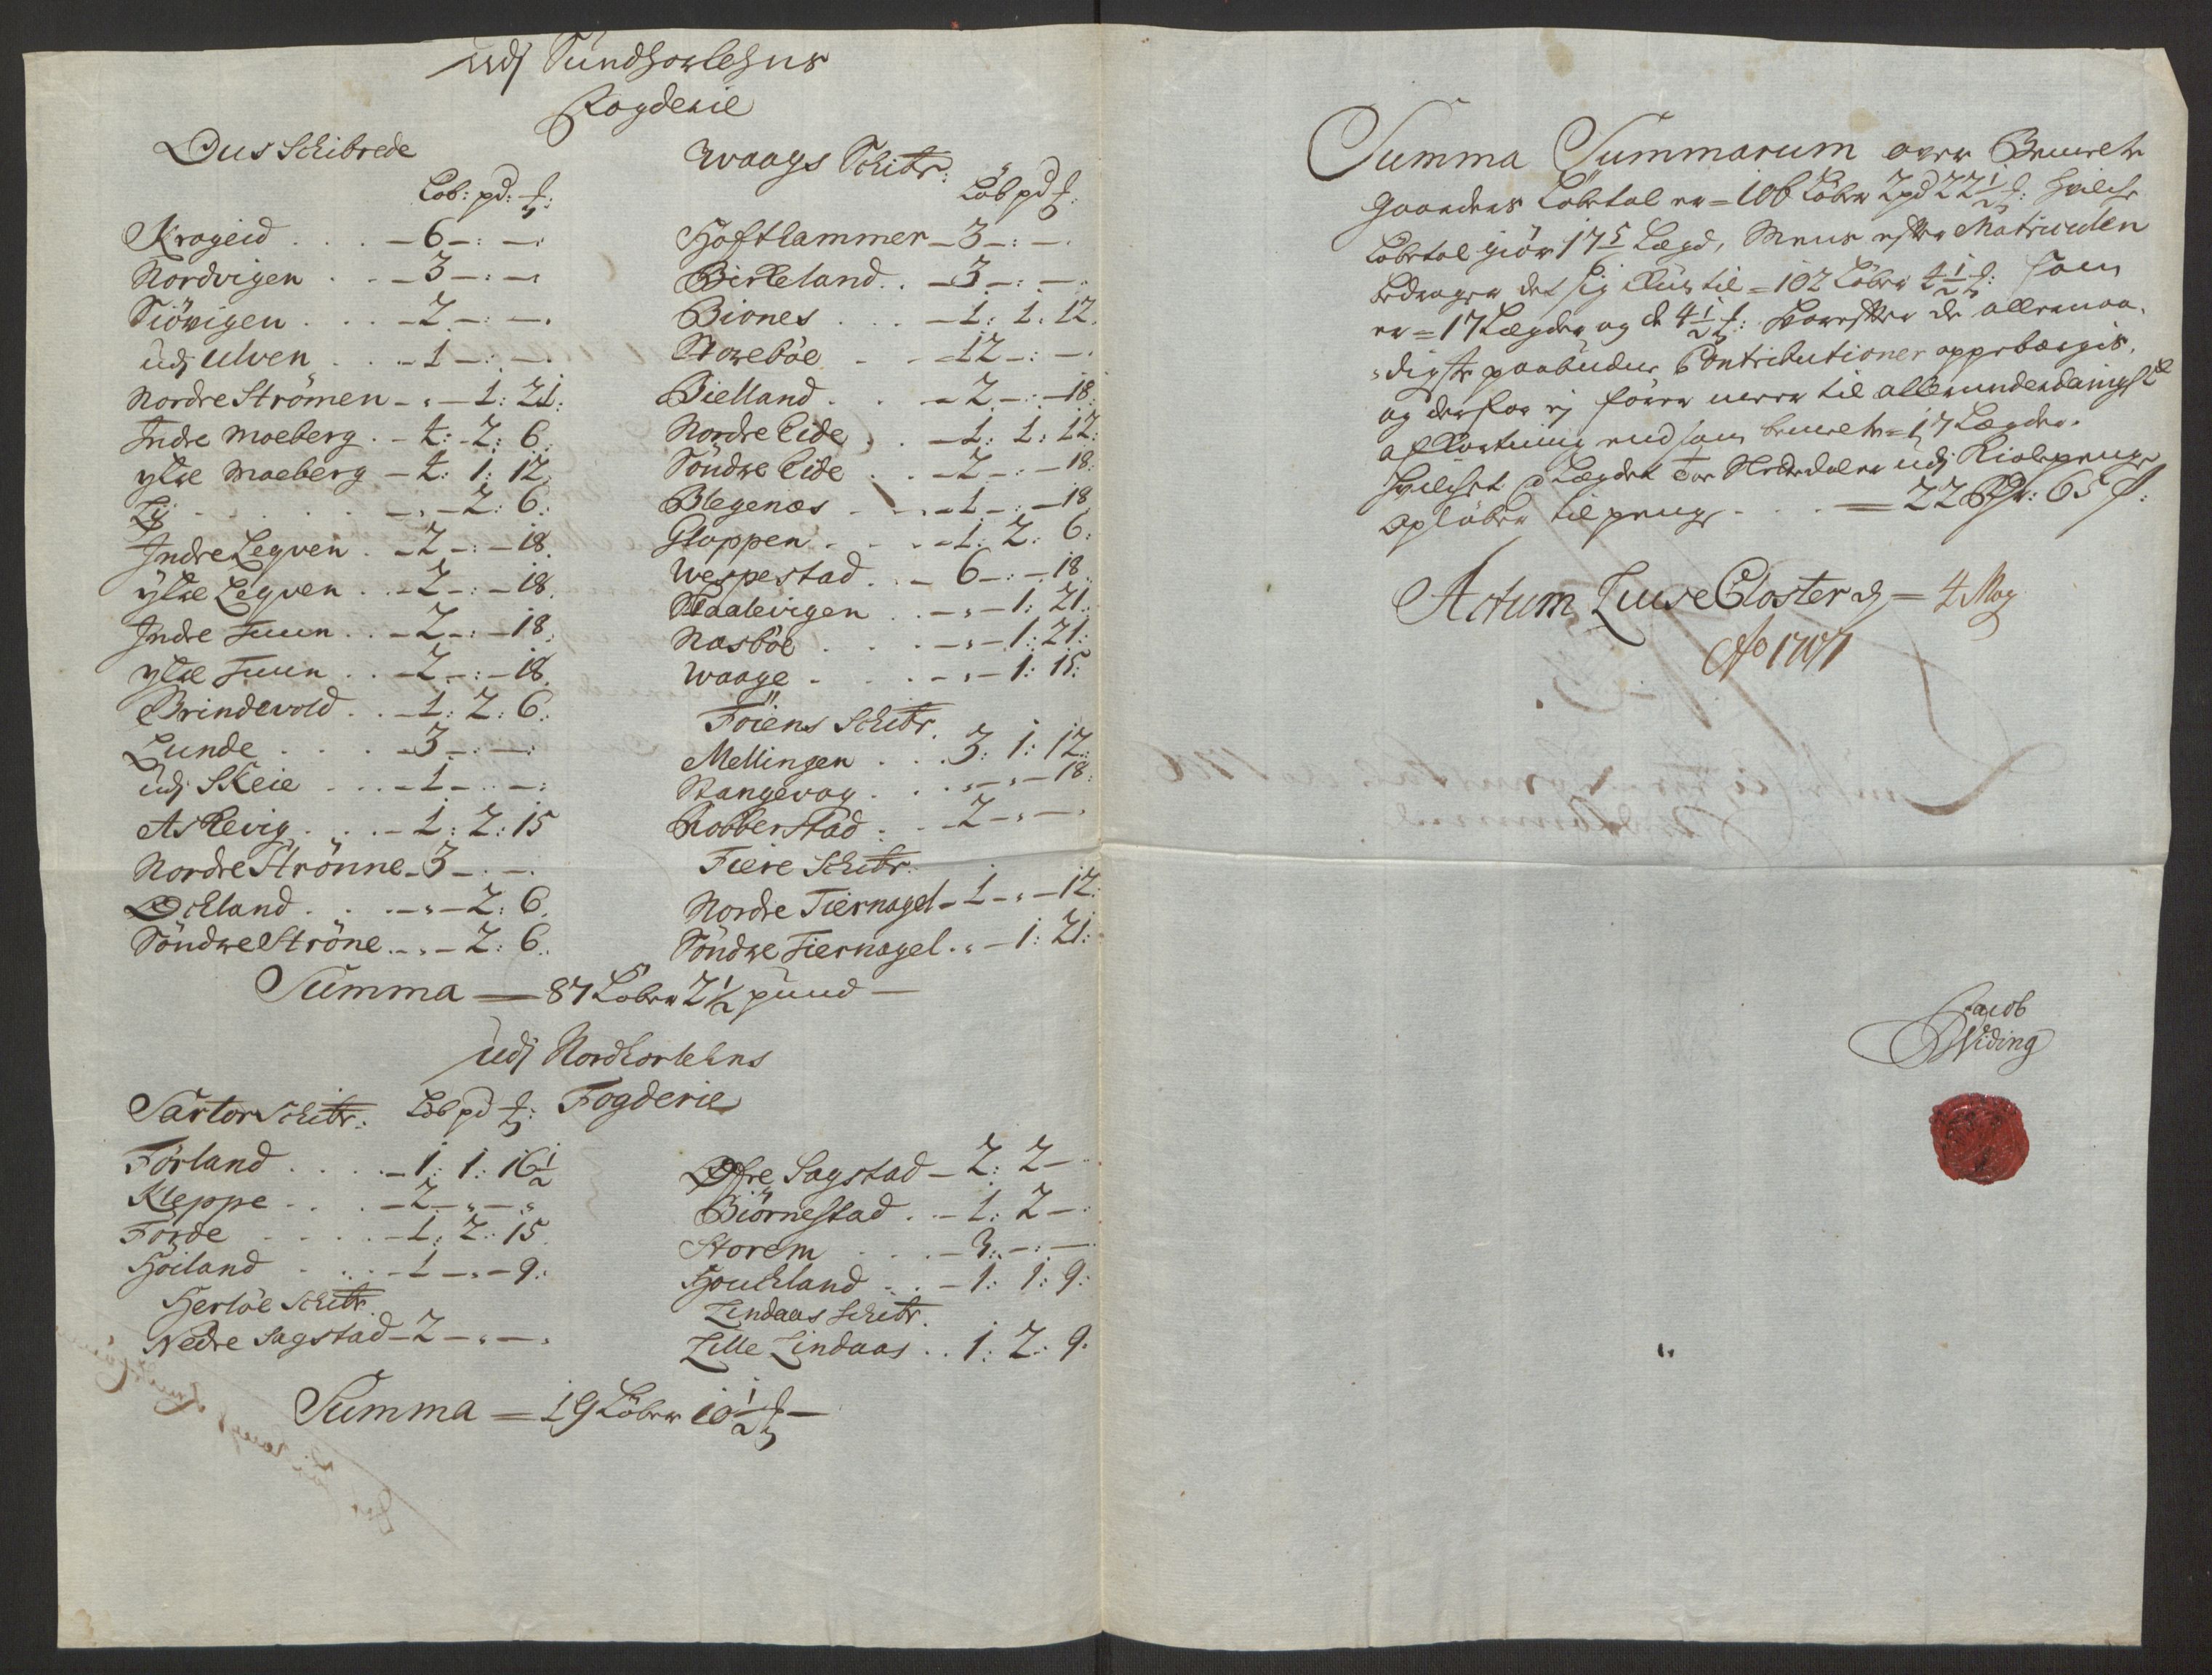 udj Sundhorlehns
Fogderie
Ous Schibrede
Lob: pd: ℔:
Krogeid . . . - 6 - : - :
Nordvigen . . - 3 - : - :
Siövigen . . . - 2 - : - :
udj Ulven . . . - 1 - : - :
Nordre Strömen - : - 1: 21:
Indre Moeberg . - 4: - 2: 6:
ytre Moeberg - 4: 1: 12:
Ly . . . . . - : - 2: 6:
Indre Legven . - 2 - : - 18.
ytre Legven . . - 2 - : - 18.
Indre Tuun . . - 2 - : - 18.
ytre Tuun . . - 2 - : - 18.
Grindevold . . - 1: 2: 6:
Lunde . . . . - 3 - : - :
udj Skeie . . . - 1 - : - :
Askevig . . . - 1: 2: 15
Nordre Strönne - 3 - : - .
Ockland . . . - : - 2: 6.
Söndre Ströne . . - : - 2: 6.
Waags Schibr:
Löb pd ℔:
Hoftlammer - 3 - : - .
Birkeland . . - 3 - : - .
Biones . . . - 1: 1: 12.
Storeböe . . - 12 - : - .
Bielland . . - 2 - : - 18:
Nordre Eide . . - 1: 1: 12:
Söndre Eide . . - 2 - : - 18:
Blegenæs . . - 1 - : - 18
Gloppen . . . - 1: 2: 6:
Wespestad . . - 6 - : - 18.
Staalevigen . . - : - 1: 21.
Nosböe . . . - : - 1: 21:
Waage . . . - : - 1: 15:
Föiens Schibr.
Mellingen . . . 3: 1: 12:
Stangevog . . . - : - 18:
Robberstad . . - 2 - : - .
Fiere Schibr.
Nordre Tiernagel - 1 - : - 12:
Söndre Tiernagel . : - 1: 21:
Summa = 87 Löber 2 1/2 pund -
udj Nordhorlehns
Fogderie
Sartor Schibr: Löb pd ℔:
Förland . . . . - 1: 1: 16 1/2
Kleppe . . . - 2 - : - :
Förde . . . . - 1: 2: 15.
Höiland . . . - 1 - : - 9:
Herlöe Schibr
Nedre Sagstad - 2 - : - :
Øfre Sagstad - 2: 2 - .
Biörnestad . . - 1: 2 - :
Storem . . . - 3: - : - .
Houckland . . - 1: 1: 9:
Lindaas Schibr.
Lille Lindaas . . 1: 2: 9.
Summa = 19 Löber 10 1/2 ℔ -
Summa Summarum over Bemelte
Gaarders Löbetal er = 106 Löber 2 pd 22 1/2 ℔: hvilche
Löbetal giör 17 5/ Lægd, Mens efter Matriculen
bedrager det sig kun til = 102 Löber 4 1/2 ℔: som
er = 17 Lægder og de 4 1/2 ℔: hvorefter de allernaa-
digste paabudne Contributioner oppebærgis,
og derfor ej förer meer til allerunderdanigst
afkortning end som bemelte = 17 Lægder.
hvilchet Lægdet Tor udj
Opløber til penge . . . = 22 Rdr: 65 s:
Actum Luse Closter d = 4 May
Ao 1707
Jacob
Widing